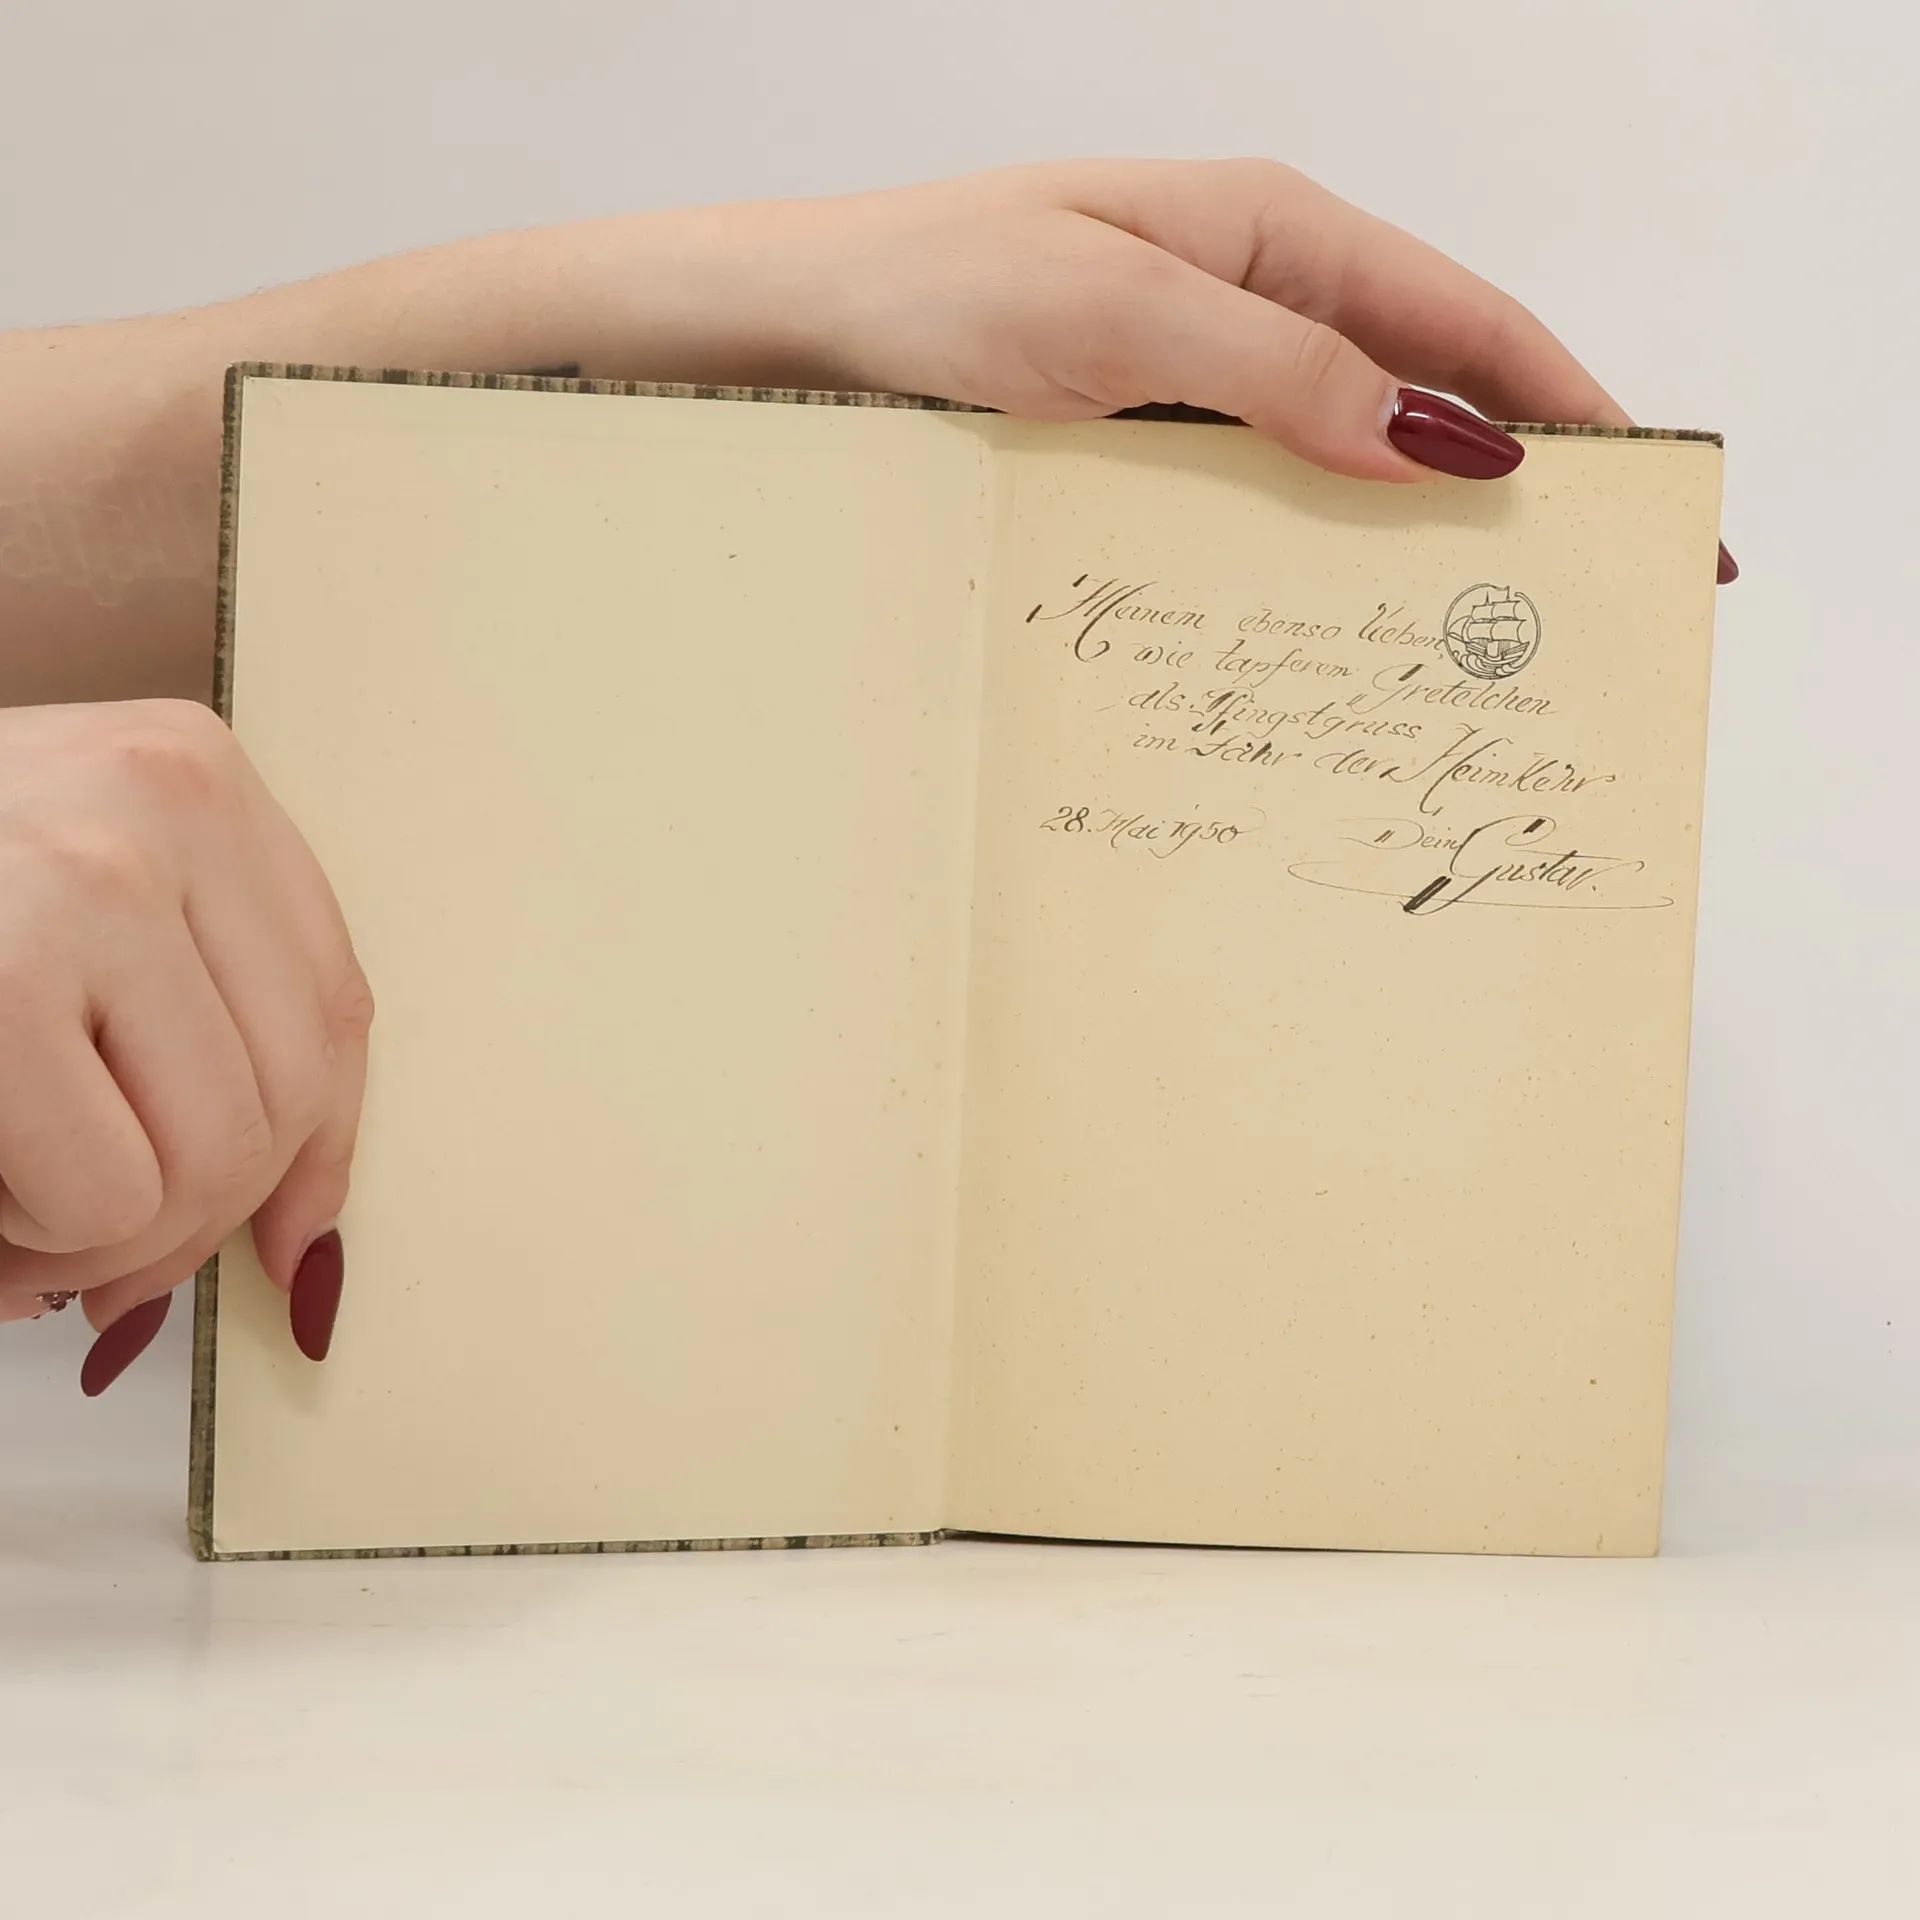 Meinem ebenso lieben,
wie tapferem Gretelchen
als Pfingstgruss
im Jahr der Heimkehr
28. Mai 1950 Dein Gustav.